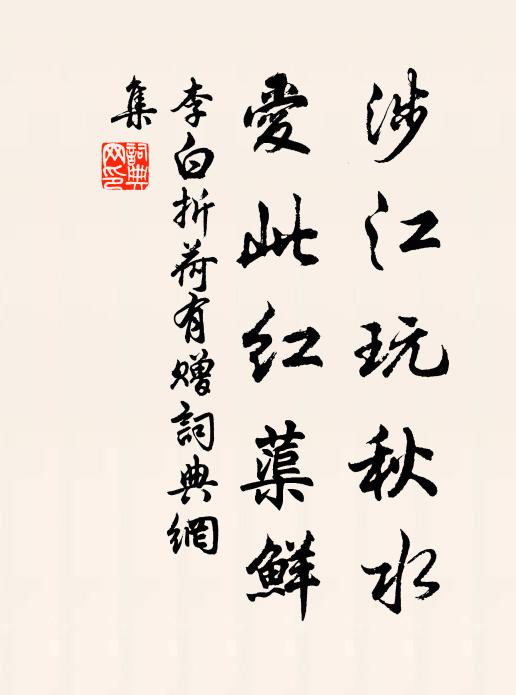 涉江玩秋水
愛此紅蕖鮮
李白折荷有贈詞典網
集
詞典網印